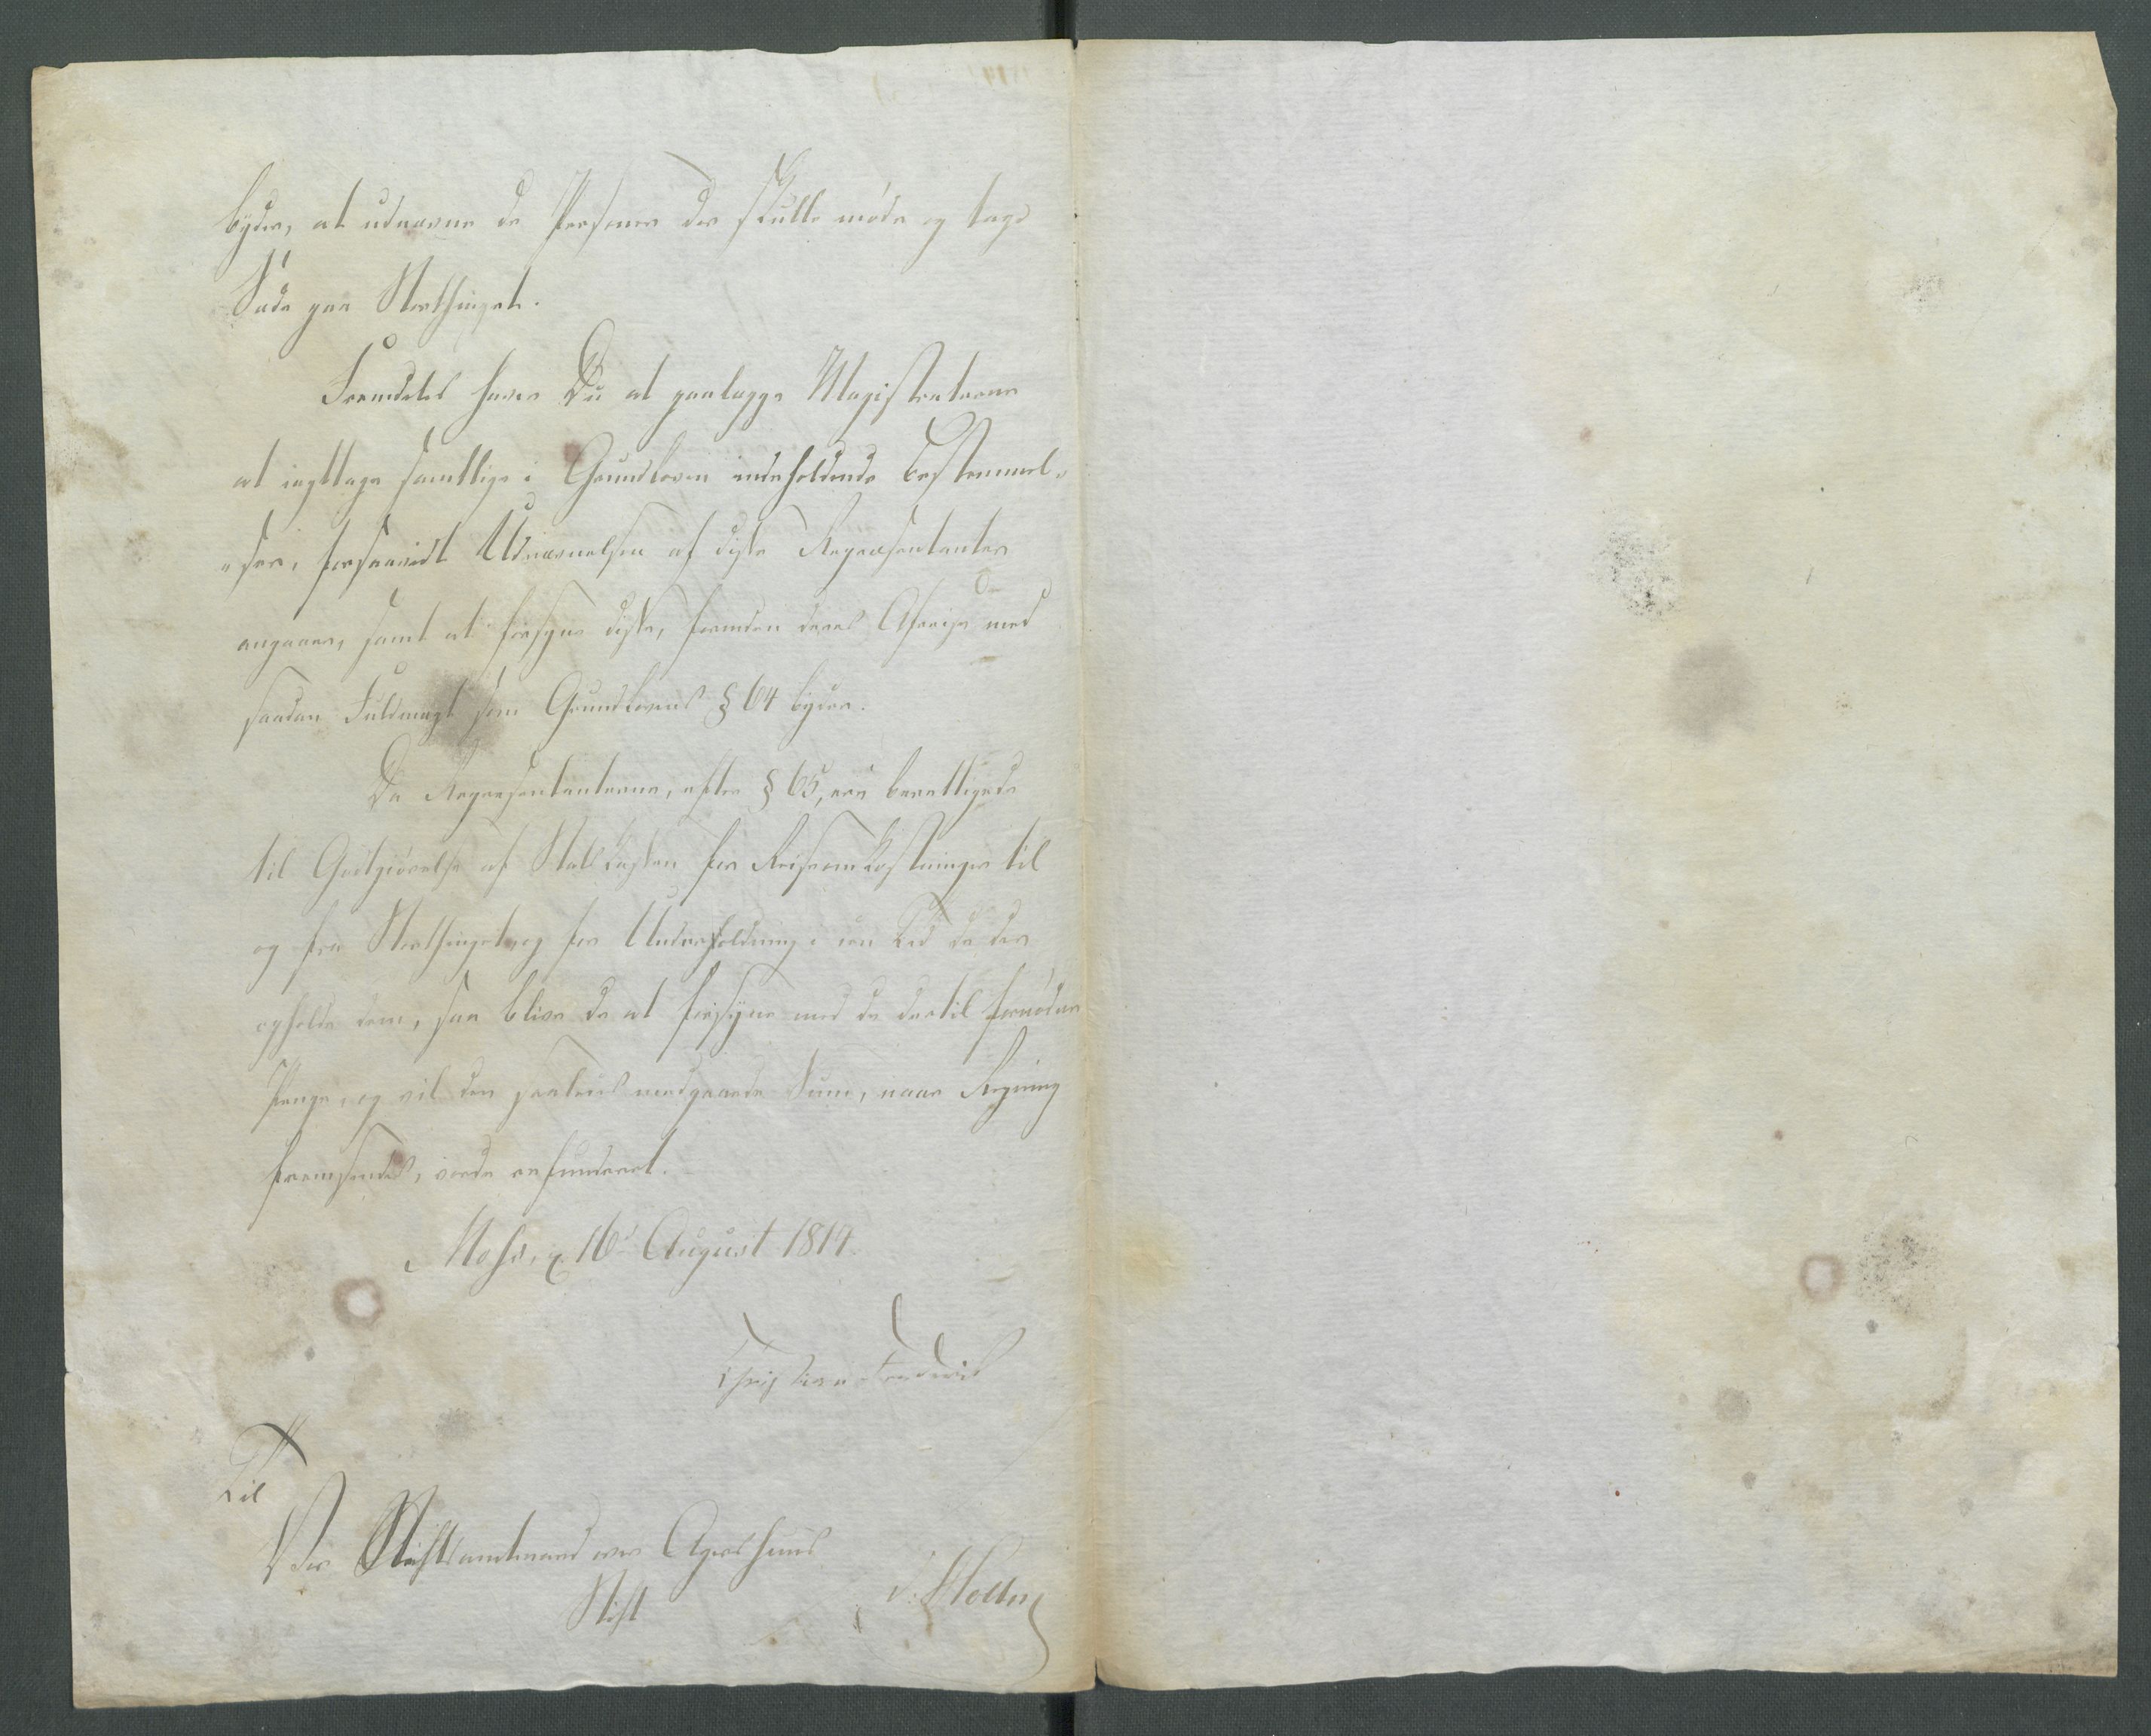 byder, at udnævne de Personer der skulle møde og tage
Sæde paa Storthinget.
Fremdeles haver Du at paalægge Magistraterne
at iagttage samtlige i Grundloven indeholdende Bestemmel„
„ser, forsaavidt Udnævnelsen af disse Repræsentanter
angaaer, samt at forsyne disse, forinden deres Afreise med
saadan Fuldmagt som Grundlovens § 64 byder.
Da Repræsentanterne, efter § 65, ere berettigede
til Godtgiørelse af Statskassen for Reiseomkostninger til
og fra Storthinget, og for Underholdning i den Tid de der
opholde dem, saa blive de at forsyne med de dertil fornødne
Penge, og vil den saaledes medgaaede Sum, naar Regning
fremsendes, vorde refunderet.
Moss, d. 16d August 1814.
Christian Frederik
Til
Vor Stiftsamtmand over Agershuus
Stift
v: Holten